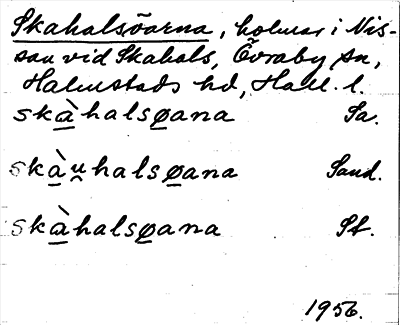 Skahalsöarna, holmar i Nis-
san vid Skahals, Övraby sn,
Halmstads hd, Hall. l.
skà̱halsø̱ana Sa.
skà̱u̯halsø̱ana Sand.
skà̱halsø̱ana St.
1956.